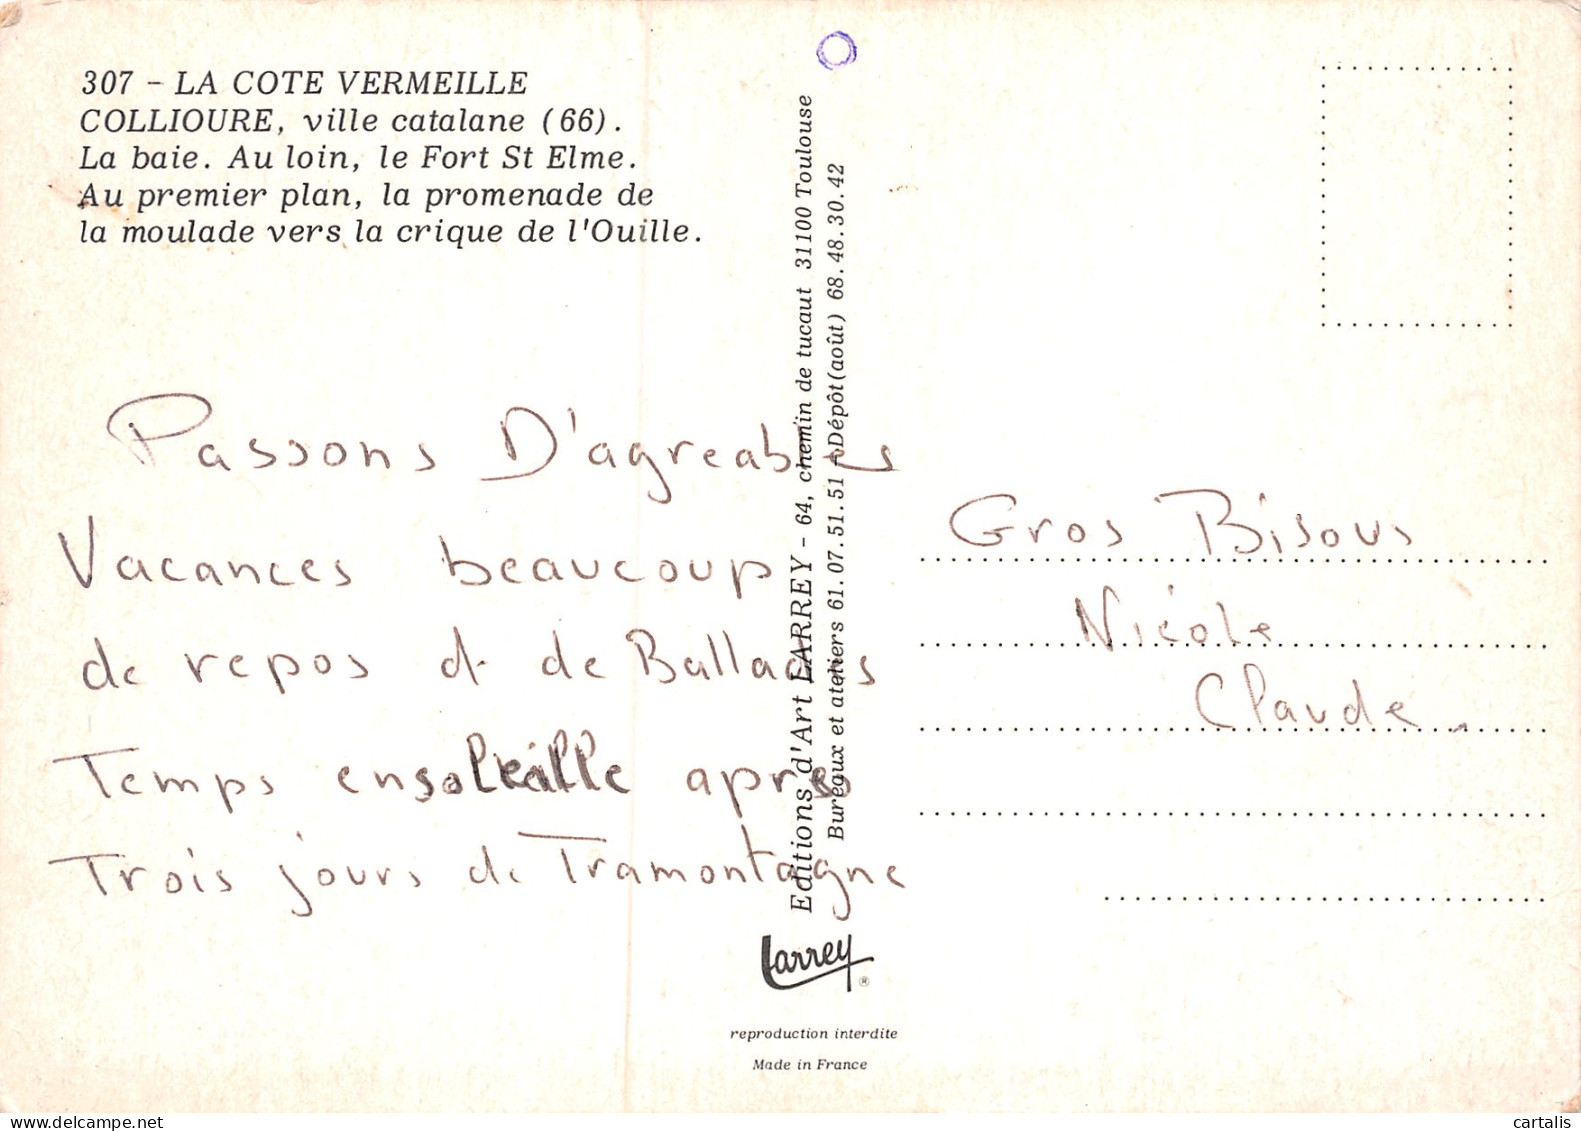 307 - LA COTE VERMEILLE
COLLIOURE, ville catalane (66).
La baie. Au loin, le Fort St Elme.
Au premier plan, la promenade de
la moulade vers la crique de l'Ouille.
Passons D'agreables
Vacances beaucoup
de repos et de Ballades
Temps ensoleille apres
Trois jours de Tramontagne
Editions d'Art LARREY - 64, chemin de tucaut 31100 Toulouse
Bureaux et ateliers 61.07.51.51 - Dépôt(août) 68.48.30.42
Larrey ®
reproduction interdite
Made in France
Gros Bisous
Nicole
Claude
cartalis
delcampe.net